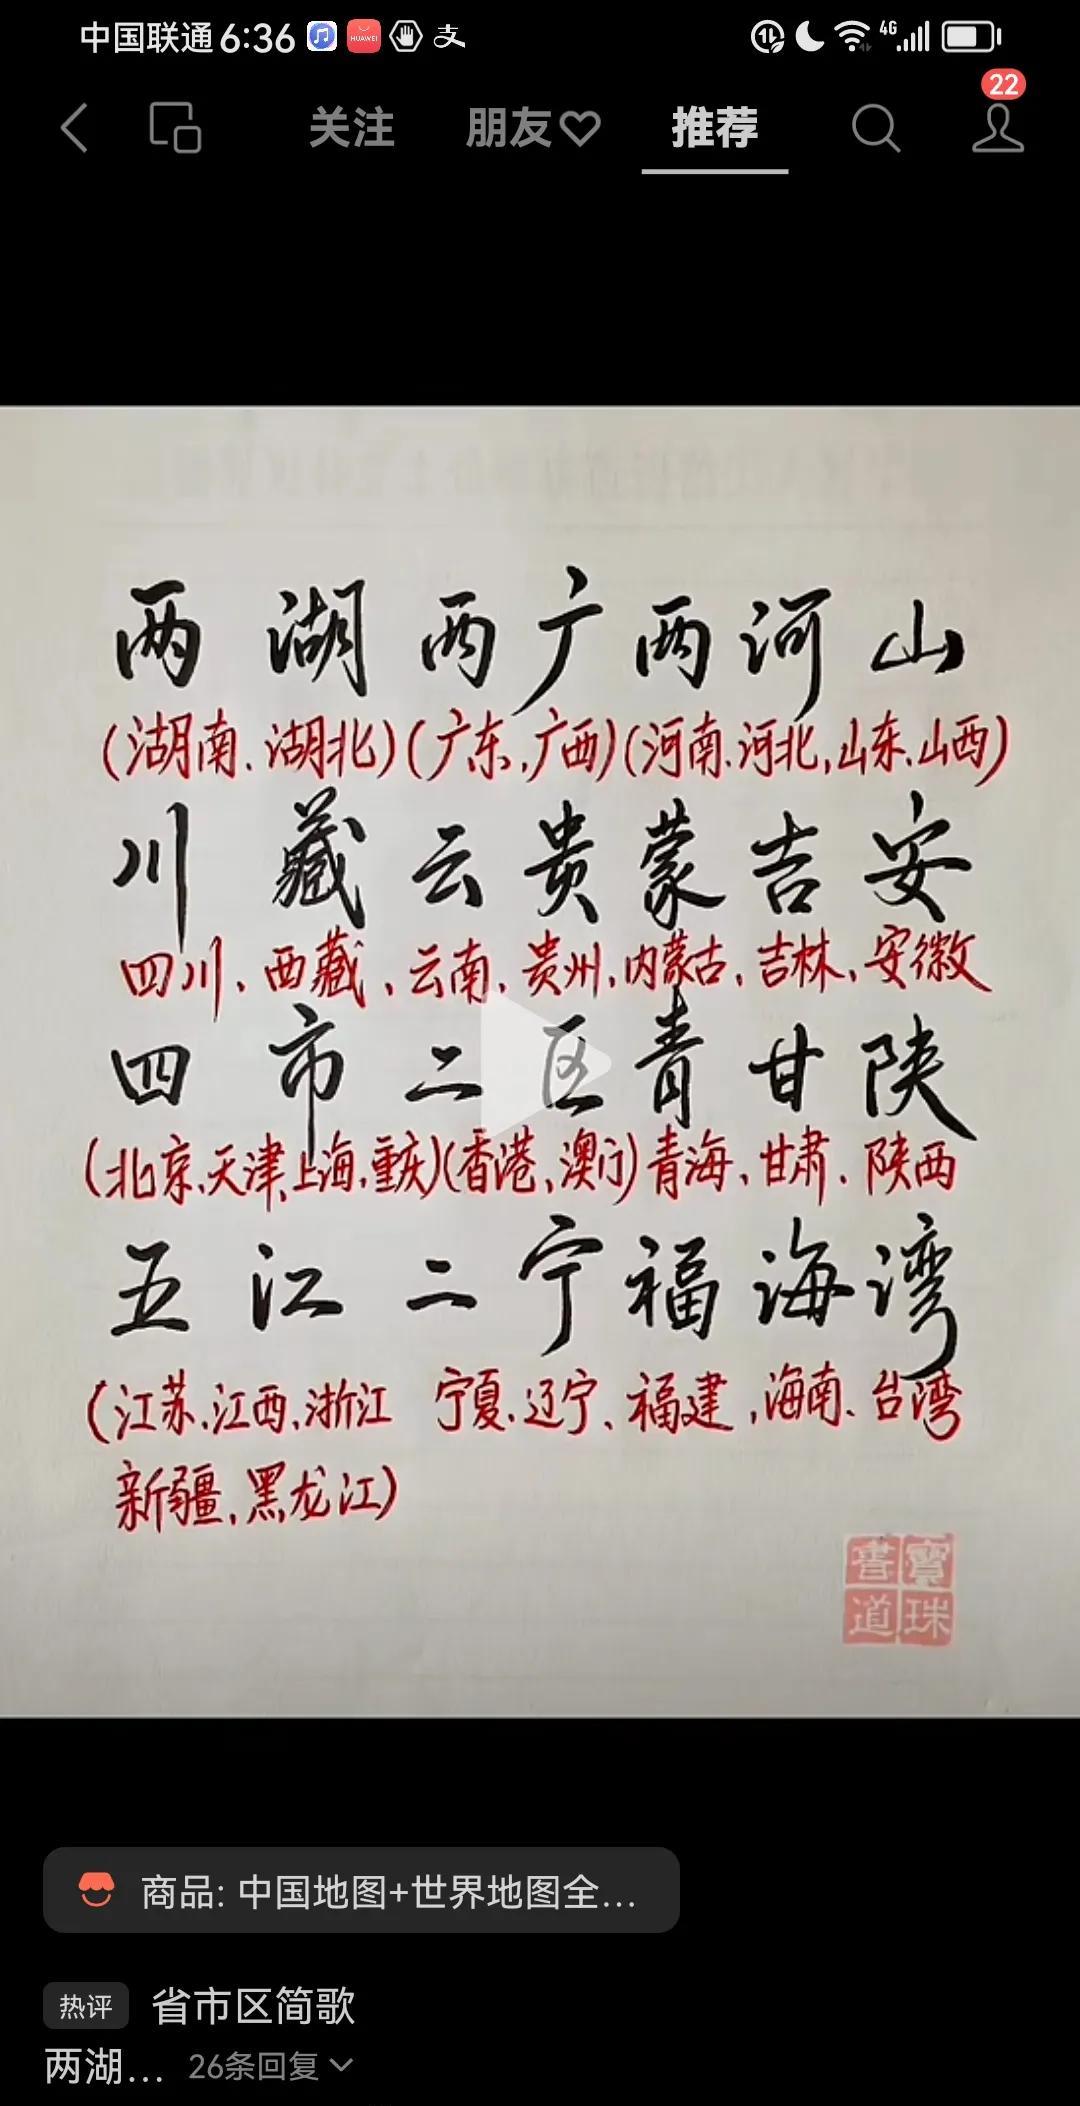 中国联通 6:36 HUAWEI 支 4G
关注 朋友 推荐 22
两湖两广两河山
(湖南、湖北)(广东,广西)(河南、河北,山东、山西)
川藏云贵蒙吉安
四川、西藏、云南、贵州,内蒙古,吉林、安徽
四市二区青甘陕
(北京、天津、上海、重庆)(香港、澳门)青海、甘肃、陕西
五江二宁福海湾
(江苏、江西、浙江 宁夏、辽宁、福建,海南、台湾
新疆,黑龙江)
書寶
道珠
商品: 中国地图+世界地图全...
热评 省市区简歌
两湖... 26条回复